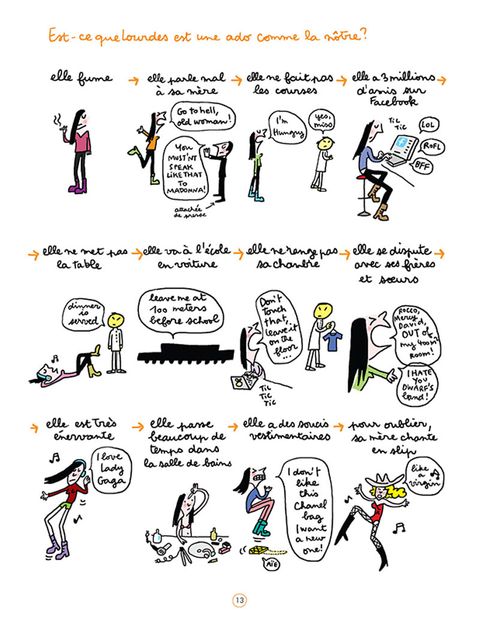 Est-ce que Lourdes est une ado comme la nôtre?
elle fume
→ elle parle mal
à sa mère
→ elle ne fait pas
les courses
→ elle a 3 millions →
d'amis sur
Facebook
Go to hell,
old woman!
YOU
MUST'NT
SPEAK
LIKE THAT
TO
MADONNA!
attachée
de presse
I'm
Hungry
Yes,
miss
TIC
TIC
LOL
ROFL
BFF
→ elle ne met pas
la table
→ elle va à l'école
en voiture
→ elle ne range pas
sa chambre
→ elle se dispute
avec ses frères
et sœurs
dinner
is
served
leave me at
100 meters
before school
Don't
Touch
that,
leave it
on the
floor
...
TIC
TIC
TIC
ROCCO,
Mercy,
David,
OUT of
my 400m²
Room!
I HATE
YOU
DWARF'S
band!
→ elle est très
énervante
→ elle passe
beaucoup de
temps dans
la salle de bains
→ elle a des soucis
vestimentaires
→ pour oublier,
sa mère chante
en slip
I love
Lady
Gaga
I don't
like
this
Chanel
bag
I want
a new
one!
AÏE
like
a
virgin
13